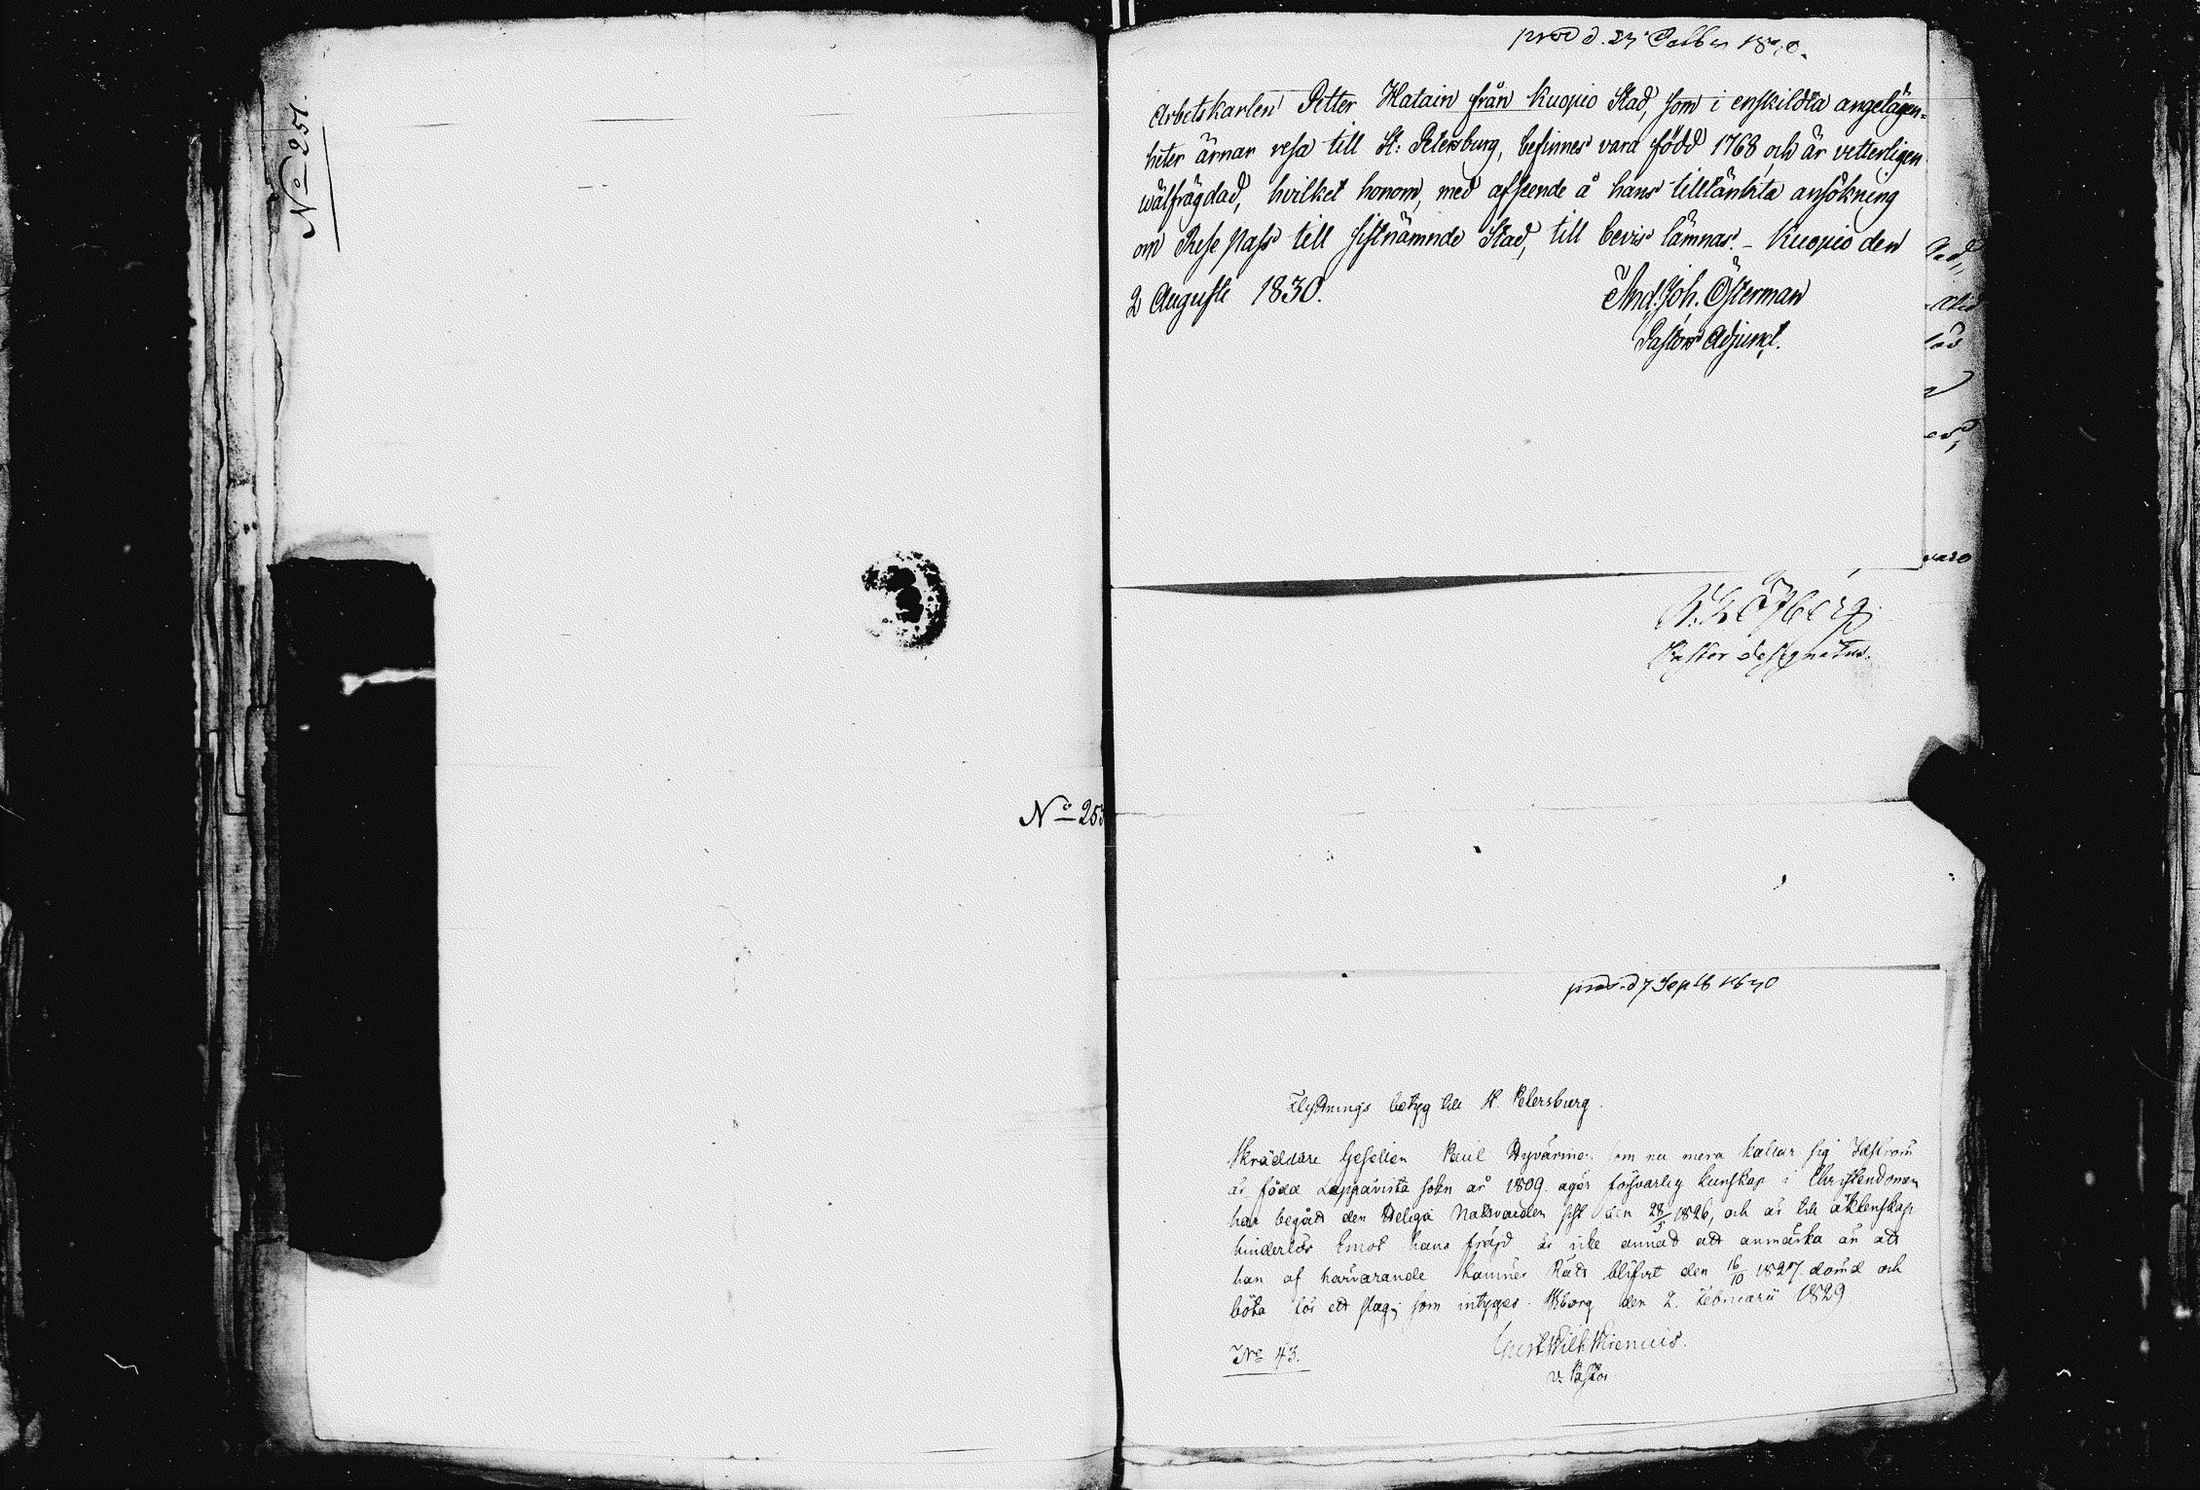 No 251.
No 253
Arbetskarlen Petter Hatain från Kuopio Stad, som i enskildta angelägen-
heter ärnar resa till St: Petersburg, befinnes vara född 1768 och är vetterligen
wälfrägdad, hvilket honom, med afseende å hans tilltänkta ansökning
om Rese Pass till sistnämnde Stad, till bevis lämnas. - Kuopio den
2 Augusti 1830.
And. Joh. Österman
Pastors Adjunct.
Pastor designatus.
pres. d 7 Septb 1830
Flyttnings betyg till St. Petersburg.
Skräddare Gesellen Paul Hyvärine som nu mera kallar sig
är född Lappävista sokn år 1809. äger försvarlig kunskap i Christendomen
har begått den Heliga Nattvarden sist den 28/5 1826, och är till äktenskap
hinderlös Emot hans fräjd är icke annat att anmärka än att
han af härvarande Kämners Rätt blifvit den 16/10 1827 dömd och
böta för ett slag; som intygas. Wiborg den 2. Februarii 1829
No 43.
v. Pastor